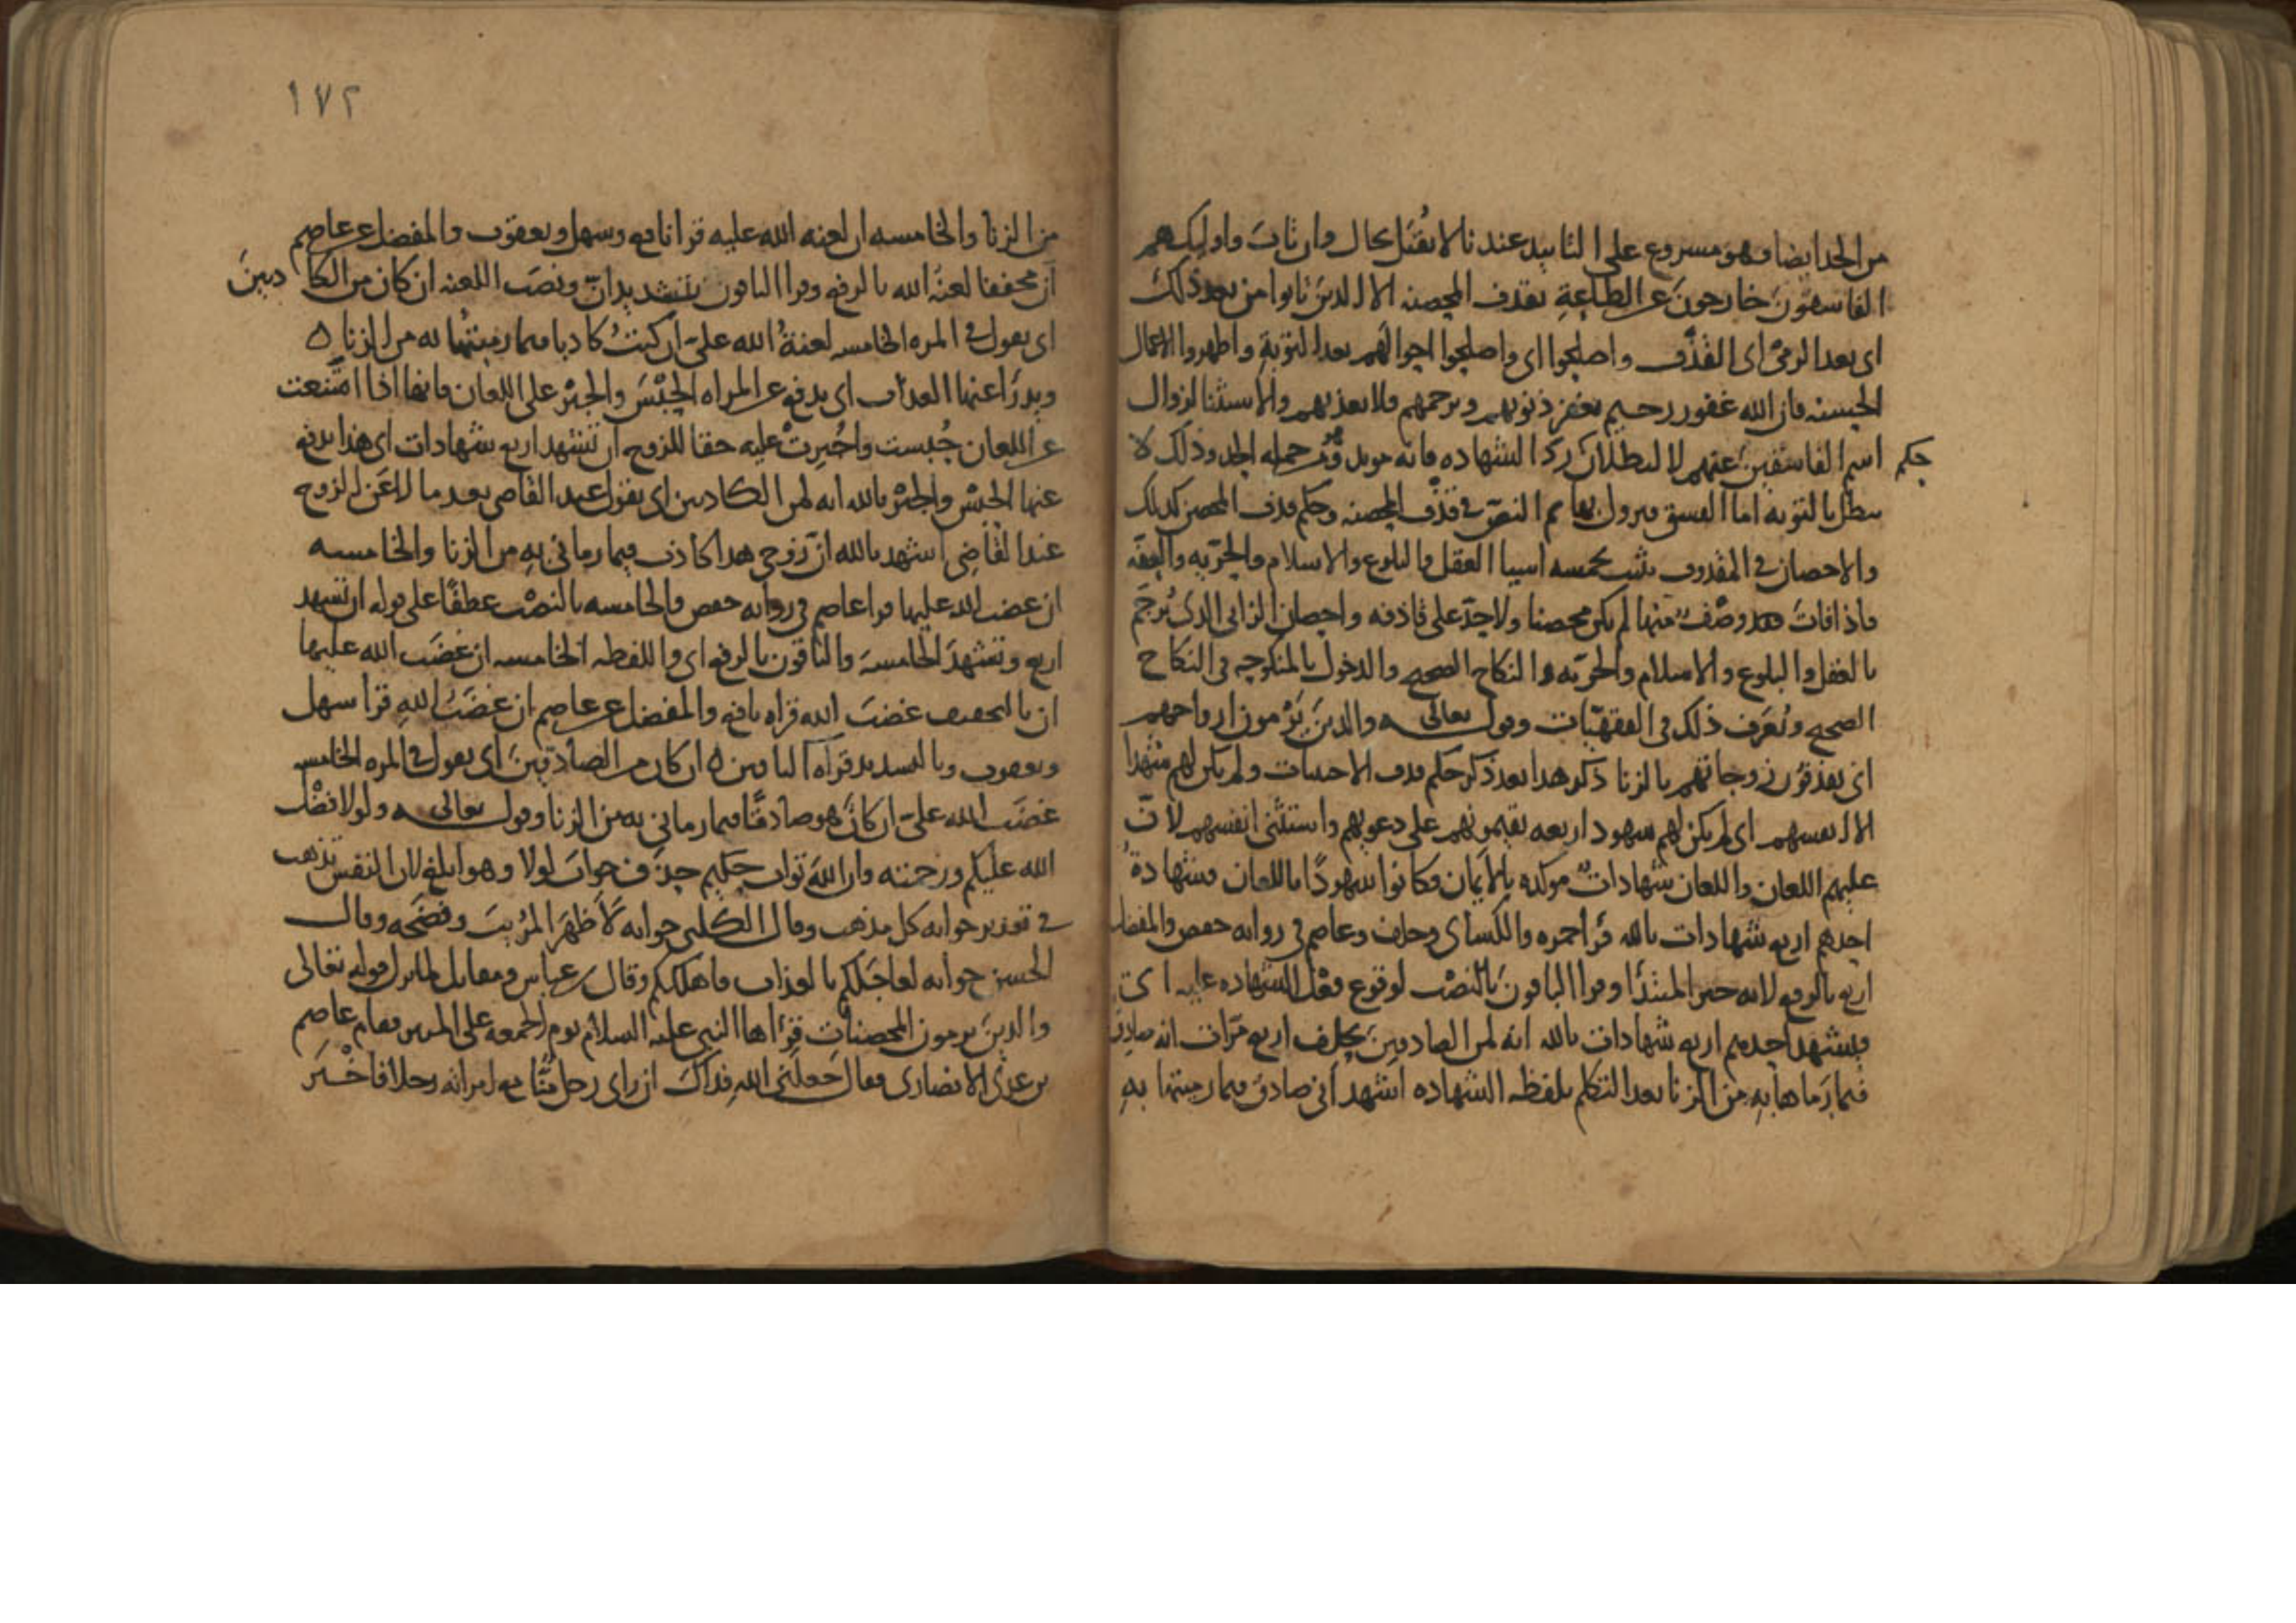 من الحد ايضا وهو مشروع على التابيد عندنا لا تقبل بحال وان تاب واوليك هم
الفاسقون خارجون عن الطاعة بقذف المحصنه الا الذين تابوا من بعد ذلك
اى بعد الرمى اى القذف واصلحوا اى واصلحوا احوالهم بعد التوبة واظهروا الاعمال
الحسنه فان الله غفور رحيم يغفر ذنوبهم ويرحمهم ولا يعذبهم والاستثنا لزوال
اسم الفاسقين عنهم لا لبطلان رد الشهاده فانه موبد من جمله الحد وذلك لا
حكم
يبطل بالتوبه اما الفسق فيزول بها ثم النص فى قذف المحصنه وحكم قذف المحصن كذلك
والاحصان فى المقذوف يثبت بخمسه اسيا العقل والبلوغ والاسلام والحريه والعفه
فاذا فات وصف منها لم يكن محصنا ولا حد على قاذفه واحصان الزانى الذى يرجم
بالعقل والبلوغ والاسلام والحريه والنكاح الصحيح والدخول بالمنكوحه فى النكاح
الصحيح وتعرف ذلك فى الفقهيات وقوله تعالى والذين يرمون ازواجهم
اى يقذفون زوجاتهم بالزنا ذكر هذا بعد ذكر حكم قذف الاجنبيات ولم يكن لهم شهدا
الا انفسهم اى لم يكن لهم شهود اربعه يقيمونهم على دعويهم واستثنى انفسهم لان
عليهم اللعان واللعان شهادات موكده بالايمان فكانوا شهودا باللعان فشهادة
احدهم اربع شهادات بالله قرا حمزه والكساى وخلف وعاصم فى روايه حفص والمفضل
اربع بالرفع لانه خبر المبتدا وقرا الباقون بالنصب لوقوع فعل الشهاده عليه اى
فيشهد احدهم اربع شهادات بالله انه لمن الصادقين يحلف اربع مرات انه صادق
فيما رماها به من الزنا بعد التكلم بلفظه الشهاده اشهد انى صادق فيما رميتها به
١٧٢
من الزنا والخامسه ان لعنه الله عليه قرا نافع وسهل ويعقوب والمفضل عن عاصم
ان مخففا لعنة الله بالرفع وقرا الباقون بتشديد ان ونصب اللعنه ان كان من الكاذبين
اى يقول فى المره الخامسه لعنة الله على ان كنت كاذبا فيما رميتها به من الزنا ه
ويدرا عنها العذاب اى يدفع عن المراه الحبس والجبر على اللعان فانها اذا امتنعت
عن اللعان حبست واجبرت عليه حقا للزوج ان تشهد اربع شهادات اى هذا يدفع
عنها الحبس والجبر بالله انه لمن الكاذبين اى بقول عبد القاضى بعد ما لاعن الزوج
عند القاضى اشهد بالله ان زوجى هذا كاذب فيما رمانى به من الزنا والخامسه
ان غضب الله عليها قرا عاصم فى روايه حفص والخامسه بالنصب عطفا على قوله ان تشهد
اربع وتشهد الخامسه والباقون بالرفع اى واللفظه الخامسه ان غضب الله عليها
ان بالتخفيف غضب الله قراه نافع والمفضل عن عاصم ان غضب الله قرا سهل
ويعقوب وبالتشديد قراه الباقين ه ان كان من الصادقين اى يقول فى المره الخامسه
غضب الله على ان كان هو صادقا فيما رمانى به من الزنا وقوله تعالى ولولا فضل
الله عليكم ورحمته وان الله تواب حكيم حذف جواب لولا وهو ابلغ لان النفس تذهب
فى تقدير جوابه كل مذهب وقال الكلبى جوابه لاظهر المريب وفضحه وقال
الحسن جوابه لعاجلكم بالعذاب فاهلككم وقال بن عباس ومقاتل لما نزل قوله تعالى
والذين يرمون المحصنات قراها النبى عليه السلام يوم الجمعه على المنبر فقام عاصم
بن عدى الانصارى فقال جعلنى الله فداك ان راى رجل منا مع امراته رجلا فاخبر